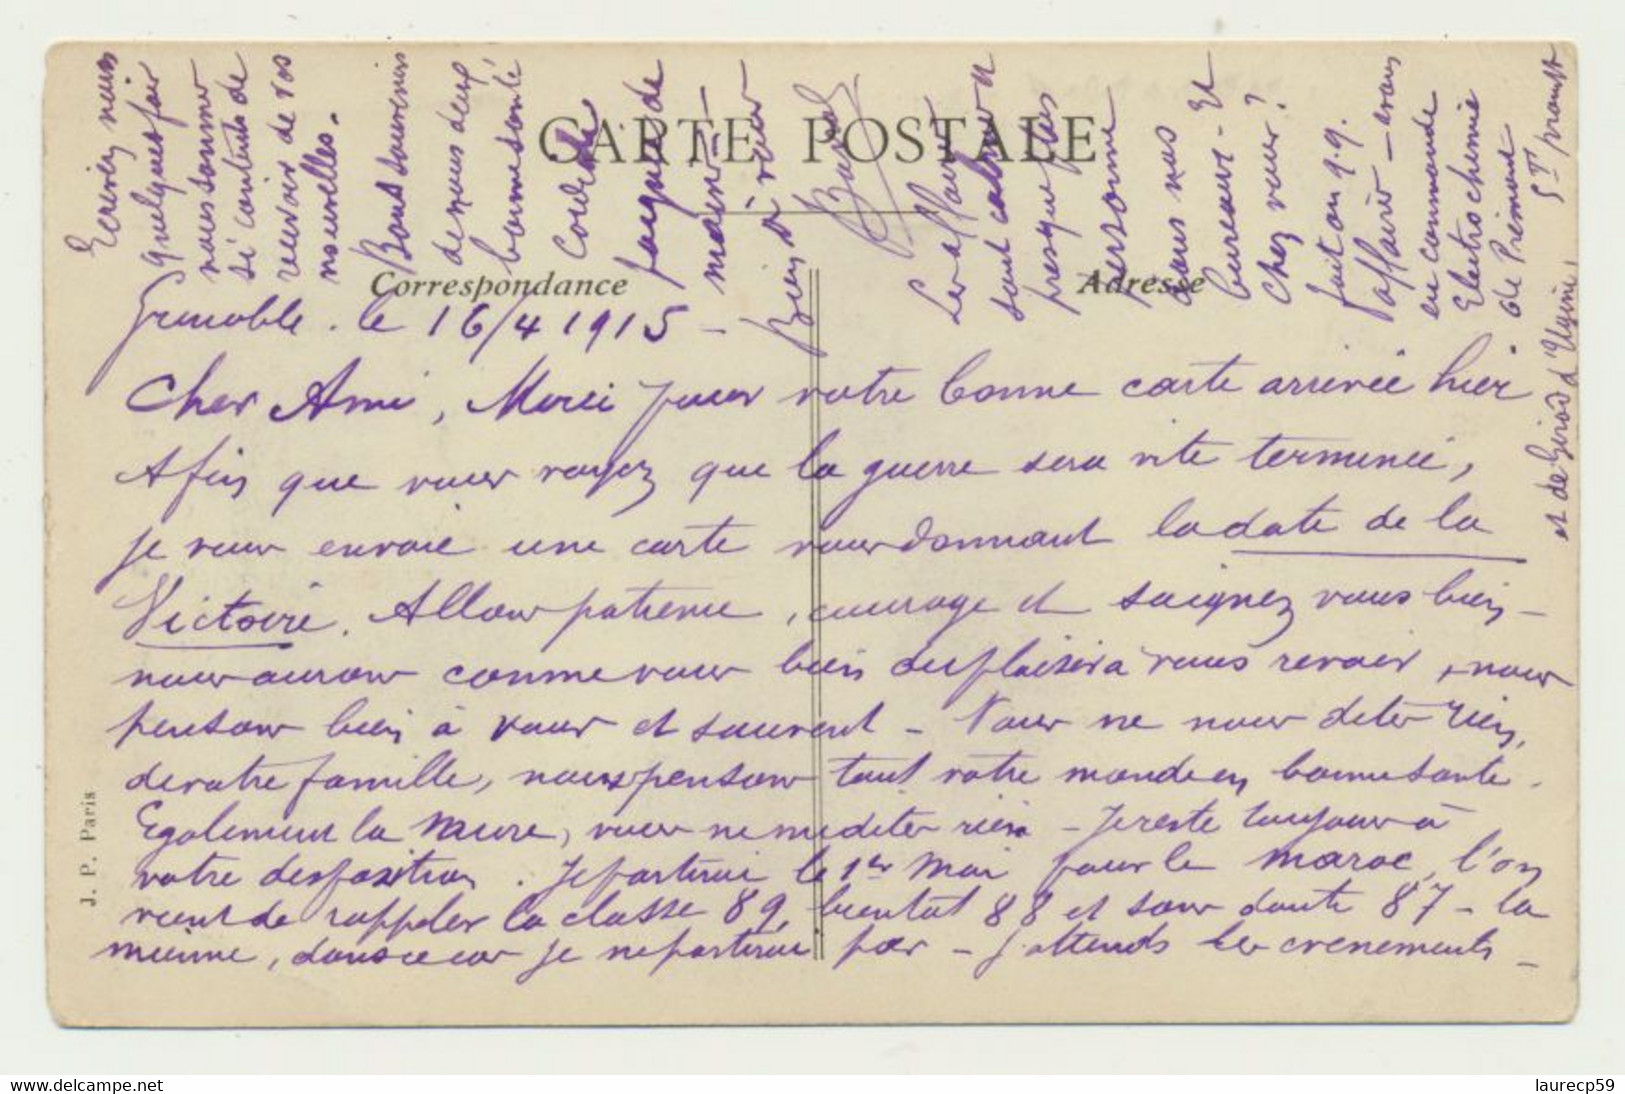 CARTE POSTALE
Correspondance
Adresse
Grenoble. le 16/4 1915 -
Cher Ami, Merci pour votre bonne carte arrivée hier
Afin que vous voyez que la guerre sera vite terminée,
je vous envoie une carte vous donnant la date de la
Victoire. Allons patience, courage et soignez vous bien -
nous aurons comme vous bien du plaisir à vous revoir, nous
pensons bien à vous et souvent - Vous ne nous dites rien,
de votre famille, nous pensons tout votre monde en bonne santé.
Egalement la Mure, vous ne me dites rien - Je reste toujours à
votre disposition. Je partirai le 1er Mai pour le Maroc, l'on
vient de rappeler la classe 89, bientôt 88 et sans doute 87 - la
mienne, dans ce cas je ne partirai pas - J'attends les evenements -
Ecrivez nous
quelques fois
nous sommes
si contents de
recevoir de vos
nouvelles.
Bons souvenirs
de nous deux
bonne santé
Cordiale
poignée de
main -
Bien à vous
Les affaires
sont calmes et
presque plus
personne
dans nos
bureaux - Et
Chez vous?
fait on q.q.
affaires - avons
en commande
Electrochimie
de Prémont
et de Girod d'Ugine,
J. P. Paris
delcampe.net
laurecp59